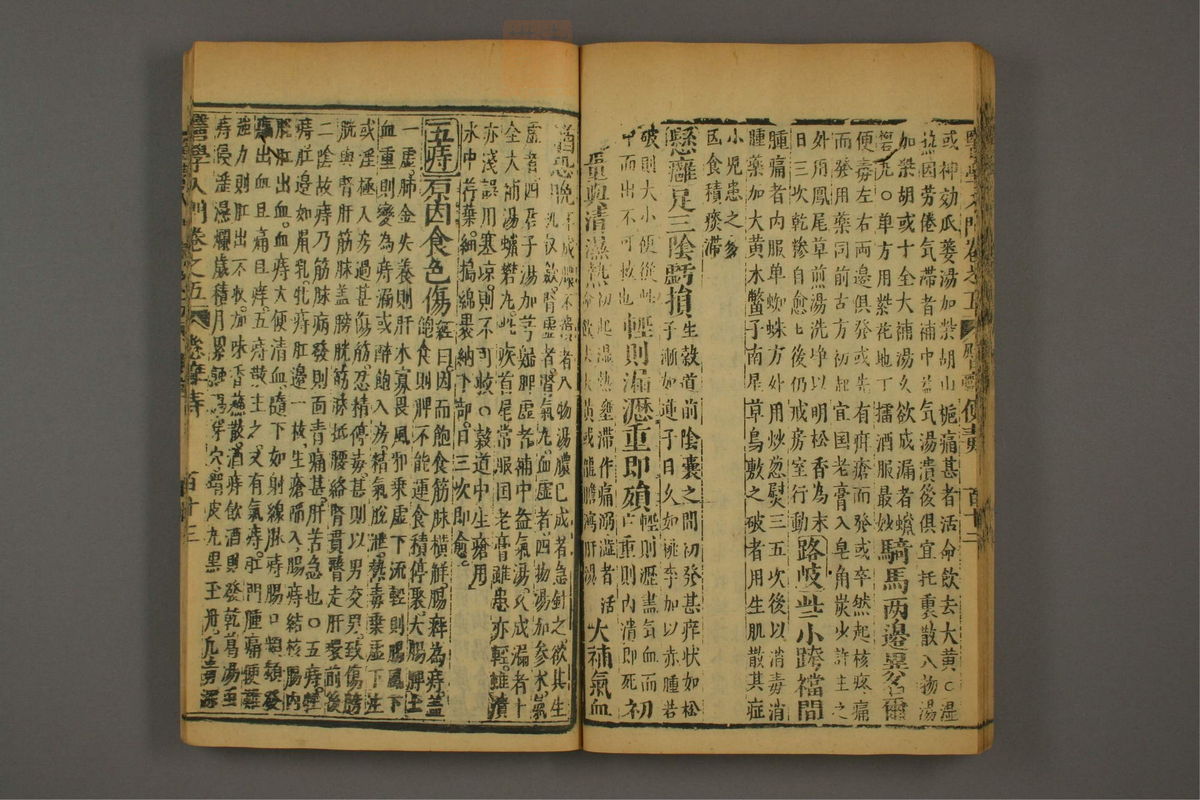 或神効瓜蔞湯加柴胡山梔痛甚者活命飲去大黃○濕
熱因勞倦氣滯者補中益氣湯潰後俱宜托裏散八物湯
加柴胡或十全大補湯久欲成漏者蠟
礬丸○單方用紫花地丁擂酒服最妙騎馬兩邊
便毒左右兩邊俱發或先有疳瘡而發或卒然起核疼痛
而發用藥同前古方初起宜国老膏入皂角炭少許主之
外用鳳尾草煎湯洗淨以明松香為末
日三次乾摻自愈七後仍戒房室行動路岐些小跨襠間
腫痛者內服单蜘蛛方外用炒葱熨三五次後以消毒消
腫藥加大黃木鱉子南星草烏敷之破者用生肌散其症
小兒患之多
因食積痰滯
懸癰足三陰虧損生穀道前陰囊之間初發甚痒状如松
子漸如蓮子日久如桃李加以赤腫若
破則大小便從此輕則漏瀝重即殞輕則瀝盡氣血而
中而出不可救也亡重則內潰即死初
量與清濕熱初起濕熱壅滯作痛溺澁者大補氣血
酒恐晚膿已成者急針之欲其生
虛者四君子湯加芎歸脾虛者補中益氣湯久成漏者十
全大補湯蠟礬丸此疾首尾常服国老膏雖患亦輕雖潰
亦淺誤用寒凉則不可救○穀道中生瘡用
水中荇葉細搗綿裹納下部日三次即愈
五痔原因食色傷經曰因而飽食筋脉横解腸癖為痔蓋
飽食則脾不能運食積停聚大腸脾土
一虛肺金失養則肝木寡畏風邪乘虛下流輕則腸風下
血重則變為痔漏或醉飽入房精氣脫泄熱毒乘虛下注
或淫極入房過甚傷筋忍精停毒甚則以男交男致傷膀
胱與腎肝筋脉蓋膀胱筋脉抵腰絡腎貫臀走肝環前後
二陰故痔乃筋脉病發則面青痛甚肝苦急也○五痔牝
痔肛邊如鼠乳牡痔肛邊一核生瘡腸痔結核腸內
脫肛出血血痔大便清血隨下如射線脉痔腸口顆顆發
瘟出血且痛且痒五痔散主之又有氣痔肛門腫痛便難
強力則肛出不收加味香蘇散酒痔飲酒則發乾葛湯
醫學入門卷之五
痔瘡
百十三